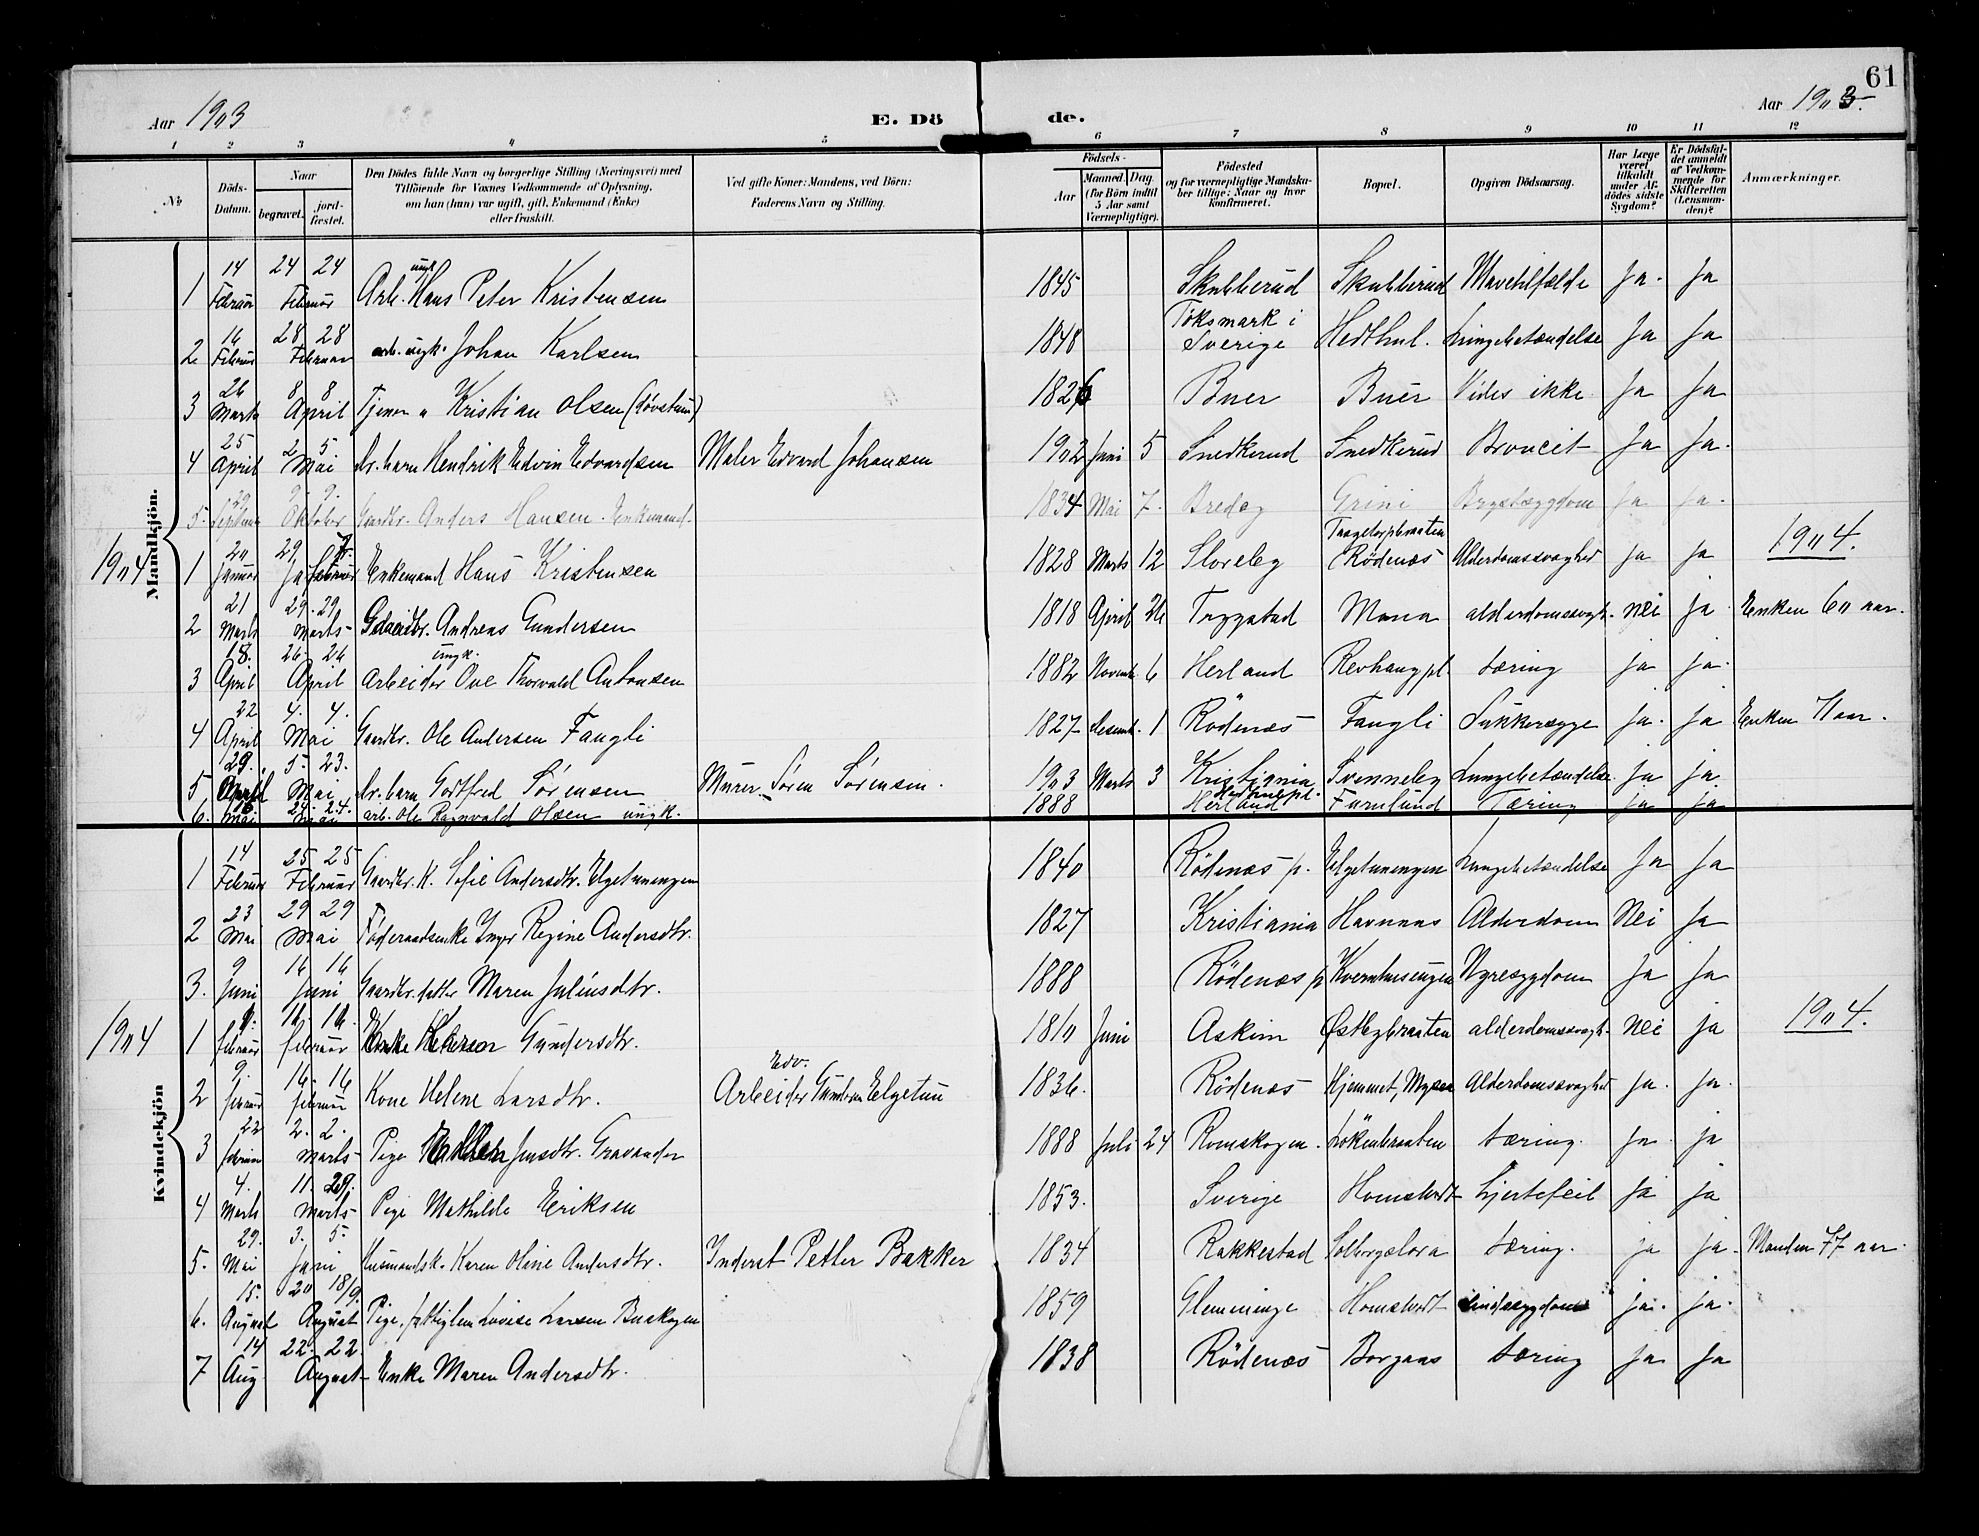 61
Aar 1903
E. Dö
de.
Aar 1903.
1 2 3 4 5 6 7 8 9 10 11 12
№
Döds-Datum.
Naar
begravet.
jord-fæstet.
Den Dödes fulde Navn og borgerlige Stilling (Næringsvei) med
Tilföiende for Voxnes Vedkommende af Oplysning,
om han (hun) var ugift, gift, Enkemand (Enke)
eller fraskilt.
Ved gifte Koner: Mandens, ved Börn:
Faderens Navn og Stilling.
Födsels-
Aar
Maaned. Dag.
(for Börn indtil
5 Aar samt
Værnepligtige).
Födested
og for værnepligtige Mandska-
ber tillige: Naar og hvor
konfirmeret.
Bopæl.
Opgiven Dödsaarsag.
Har Læge
været
tilkaldt
under Af-
dödes sidste
Sygdom?
Er Dödsfal-
det anmeldt
af Vedkom-
mende for
Skifteretten
(Lensman-
den)?
Anmærkninger.
Mandkjön.
1 14 Februar 24 24 Februar Arb. ungk. Hans Peter Kristensen 1845 Skubberud Skubberud Mavetilfælde Ja. Ja
2 16 Februar 28 28 Februar arb. ungk. Johan Karlsen 1848 Töksmark i Sverige Lungebetændelse Ja Ja
3 26 Marts 8 8 April Tjener Kristian Olsen 1826 Buer Buer Vides ikke Ja Ja
4 25 April 2 5 Mai Hendrik Edvin Edvardsen Maler Edvard Johansen 1902 Juni 5 Snedkerud Snedkerud Ja Ja.
5. 29 9. 9. Oktober Gaardbr. Anders Hansen. Enkemand. 1834 Mai 7. Grini Brystsygdom Ja Ja.
1904
1 20 Januar 29 Ja 7. februar Enkemand Hans Kristensen 1828 Marts 12 Rödenæs Alderdomssvaghed ja ja 1904.
2 21 Marts 29. 29 Marts Andreas Gundersen 1818 April 26 Trygstad Mona alderdomssvagh. nei ja Enken 60 aar.
3 18. April 26. 26 April arbeider ungk. Ove Thorvald Antonsen 1882 Novemb. 6 Herland Revhaug pl. tæring ja ja.
4 22 April 4. 4. Mai Gaardbr. Ole Andersen Fangli 1827 desemb. 1 Rödenæs Fangli Sukkersyge ja. ja Enken 71 aar.
5 29. April 5. 23. Mai Gotfred Sørensen Murer Søren Sørensen. 1903 Marts 3 Kristiania Svenneby Lungebetændelse ja ja
6. 16 Mai 24. 24. Mai arb. Ole Ragnvald Olsen ungk. 1888 Herland Furulund Tæring ja ja
Kvindekjön
1 14 Februar 25 25 Februar Gaardbr. K. Sofie Andersdtr. Elgetunengen 1840 Rödenæs p. Elgetunengen Lungebetændelse Ja Ja
2 23 Mai 29 29 Mai Föderaadsenke Inger Regine Andersdtr. 1827 Kristiania Havnaas Alderdom Nei Ja
3. 9 Juni 16 16 Juni Gaardbr. datter Maren Juliusdtr. 1888 Rödenæs p. Kvernhusengen Nyresygdom Ja Ja
1904
1 9. februar 16. 16. februar Enke Gundersdtr. 1810 Juni Askim Østbybraaten alderdomssvagh. Nei ja 1904.
2 9. februar 16. 16 februar Kone Helene Larsdtr. Arbeider Edv. Gundersen Elgetun 1836. Rödenæs Hjemmet, Mysen Alderdomssvaghed ja. ja.
3 22 februar 2. 2. Marts Pige Jensdtr. Gravander 1888 Juli 24 Romskogen. Lökenbraaten tæring. ja. ja
4 4. Marts 11. 29. Marts Pige Mathilde Eriksen 1853. Sverige Homstvedt Hjertefeil ja ja
5. 29. Mai 3. 5. Juni Husmandsk. Karen Oline Andersdtr. Inderst Petter Bakker 1834 Rakkestad tæring. ja ja. Manden 77 aar.
6. 15. August 20 18/9. August Pige, fattiglem Lovise Larsen Buskogen 1859 Glemminge Homstvedt Sindssygdom ja. ja.
7 14 Aug 22. 22. August Enke Maren Andersdtr. 1838 Rödenæs Borgaas tæring ja Ja